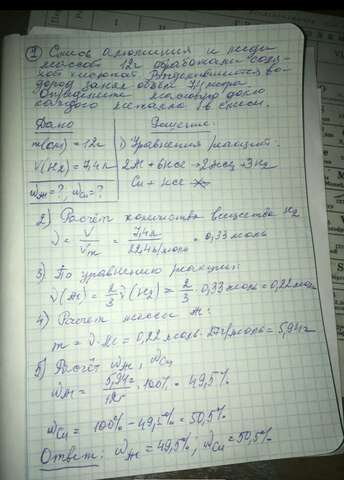 ① Смесь алюминия и меди
массой 12г обработали соля-
ной кислотой. Выделившийся во-
дород занял объем 7,4 литра
Определите массовую долю
каждого металла в смеси.
Дано
Решение.
m(см) = 12г
1) Уравнения реакций:
V(H₂) = 7,4л
2Al + 6HCl → 2AlCl₃ + 3H₂
ωAl = ?, ωCu = ?
Cu + HCl
2) Расчёт количества вещества H₂
ν = V/Vm = 7,4л/22,4л/моль = 0,33 моль
3) По уравнению реакции:
ν(Al) = 2/3 ν(H₂) = 2/3 · 0,33 моль = 0,22 моль
4) Расчет массы Al:
m = ν · M = 0,22 моль · 27г/моль = 5,94г
5) Расчёт ωAl, ωCu
ωAl = 5,94г/12г · 100% = 49,5%
ωCu = 100% - 49,5% = 50,5%
Ответ: ωAl = 49,5%, ωCu = 50,5%